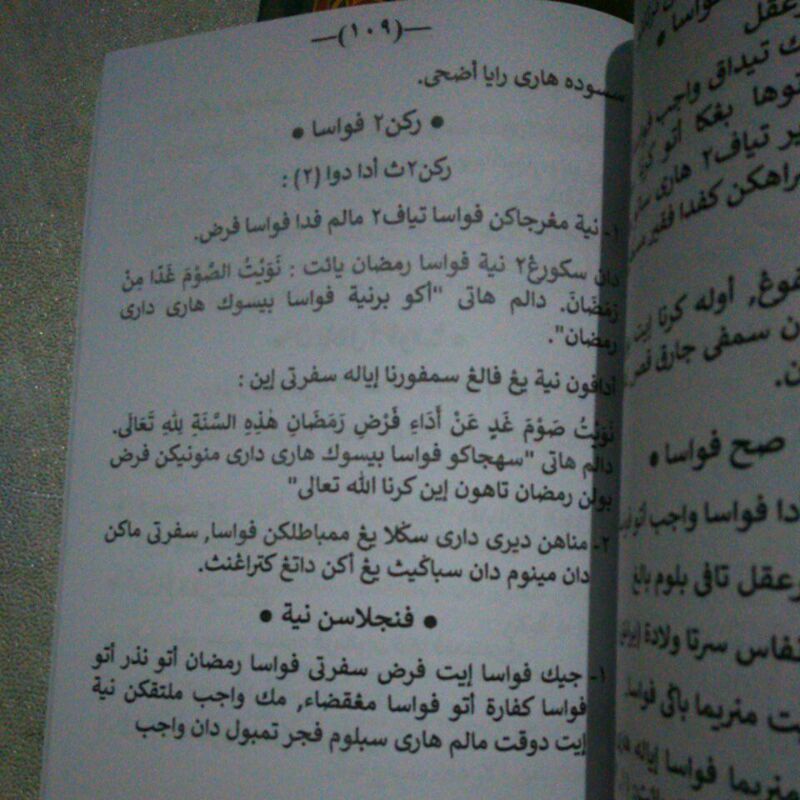 —(١٠٩)—
سسوده هاري رايا أضحى.
● ركن٢ فواسا ●
ركن٢ث أدا دوا (٢) :
١- نية مڠرجاكن فواسا تياف٢ مالم فدا فواسا فرض.
دان سكورڠ٢ نية فواسا رمضان يائت : نَوَيْتُ الصَّوْمَ غَدًا مِنْ
رَمَضَانَ. دالم هاتى "أكو برنية فواسا بيسوك هارى دارى
رمضان".
أدافون نية يڠ فالڠ سمفورنا إياله سفرتى إين :
نَوَيْتُ صَوْمَ غَدٍ عَنْ أَدَاءِ فَرْضِ رَمَضَانِ هٰذِهِ السَّنَةِ لِلهِ تَعَالَى.
دالم هاتى "سهجاكو فواسا بيسوك هارى دارى منونيكن فرض
بولن رمضان تاهون إين كرنا الله تعالى"
٢- مناهن ديرى دارى سڬلا يڠ ممباطلكن فواسا, سفرتى ماكن
دان مينوم دان سباڬيث يڠ أكن داتڠ كتراڠنث.
● فنجلاسن نية ●
١- جيك فواسا إيت فرض سفرتى فواسا رمضان أتو نذر أتو
فواسا كفارة أتو فواسا مڠقضاء, مك واجب ملتقكن نية
إيت دوقت مالم هارى سبلوم فجر تمبول دان واجب
فواسا ●
تيداق واجب
أتو
تياف٢ هارى
كفدا فقير
أوله كرنا إيت
سمفى جارق
صح فواسا ●
فواسا واجب أتو
تافى بلوم بالغ
سرتا ولادة
منريما باڬى فواسا.
منريما فواسا إياله